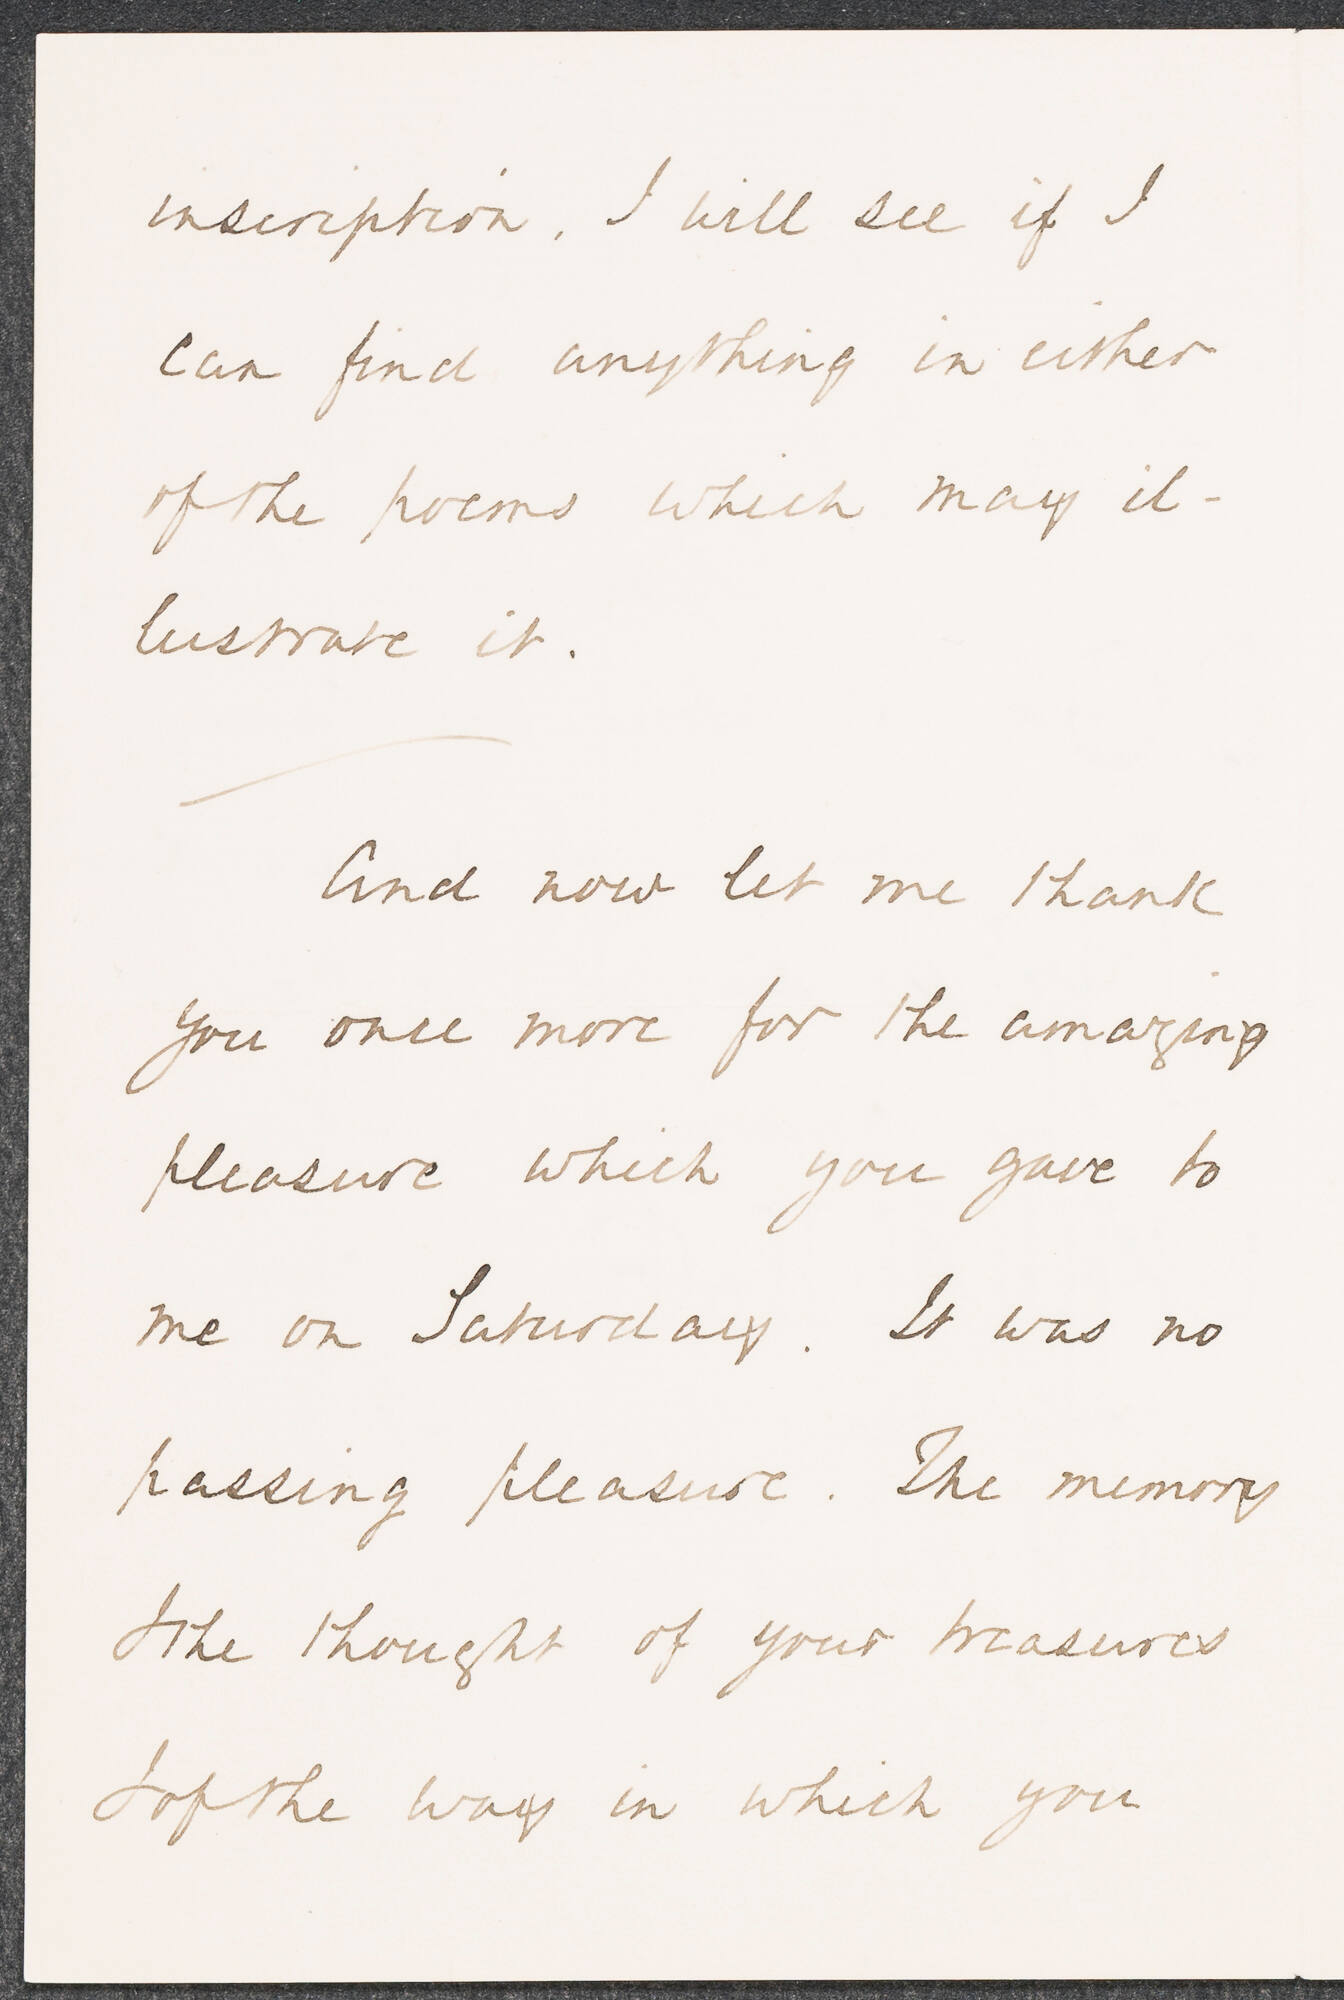 inscription. I will see if I
can find anything in either
of the poems which may il-
lustrate it.
And now let me thank
you once more for the amazing
pleasure which you gave to
me on Saturday. It was no
passing pleasure. The memory
& the thought of your treasures
& of the way in which you